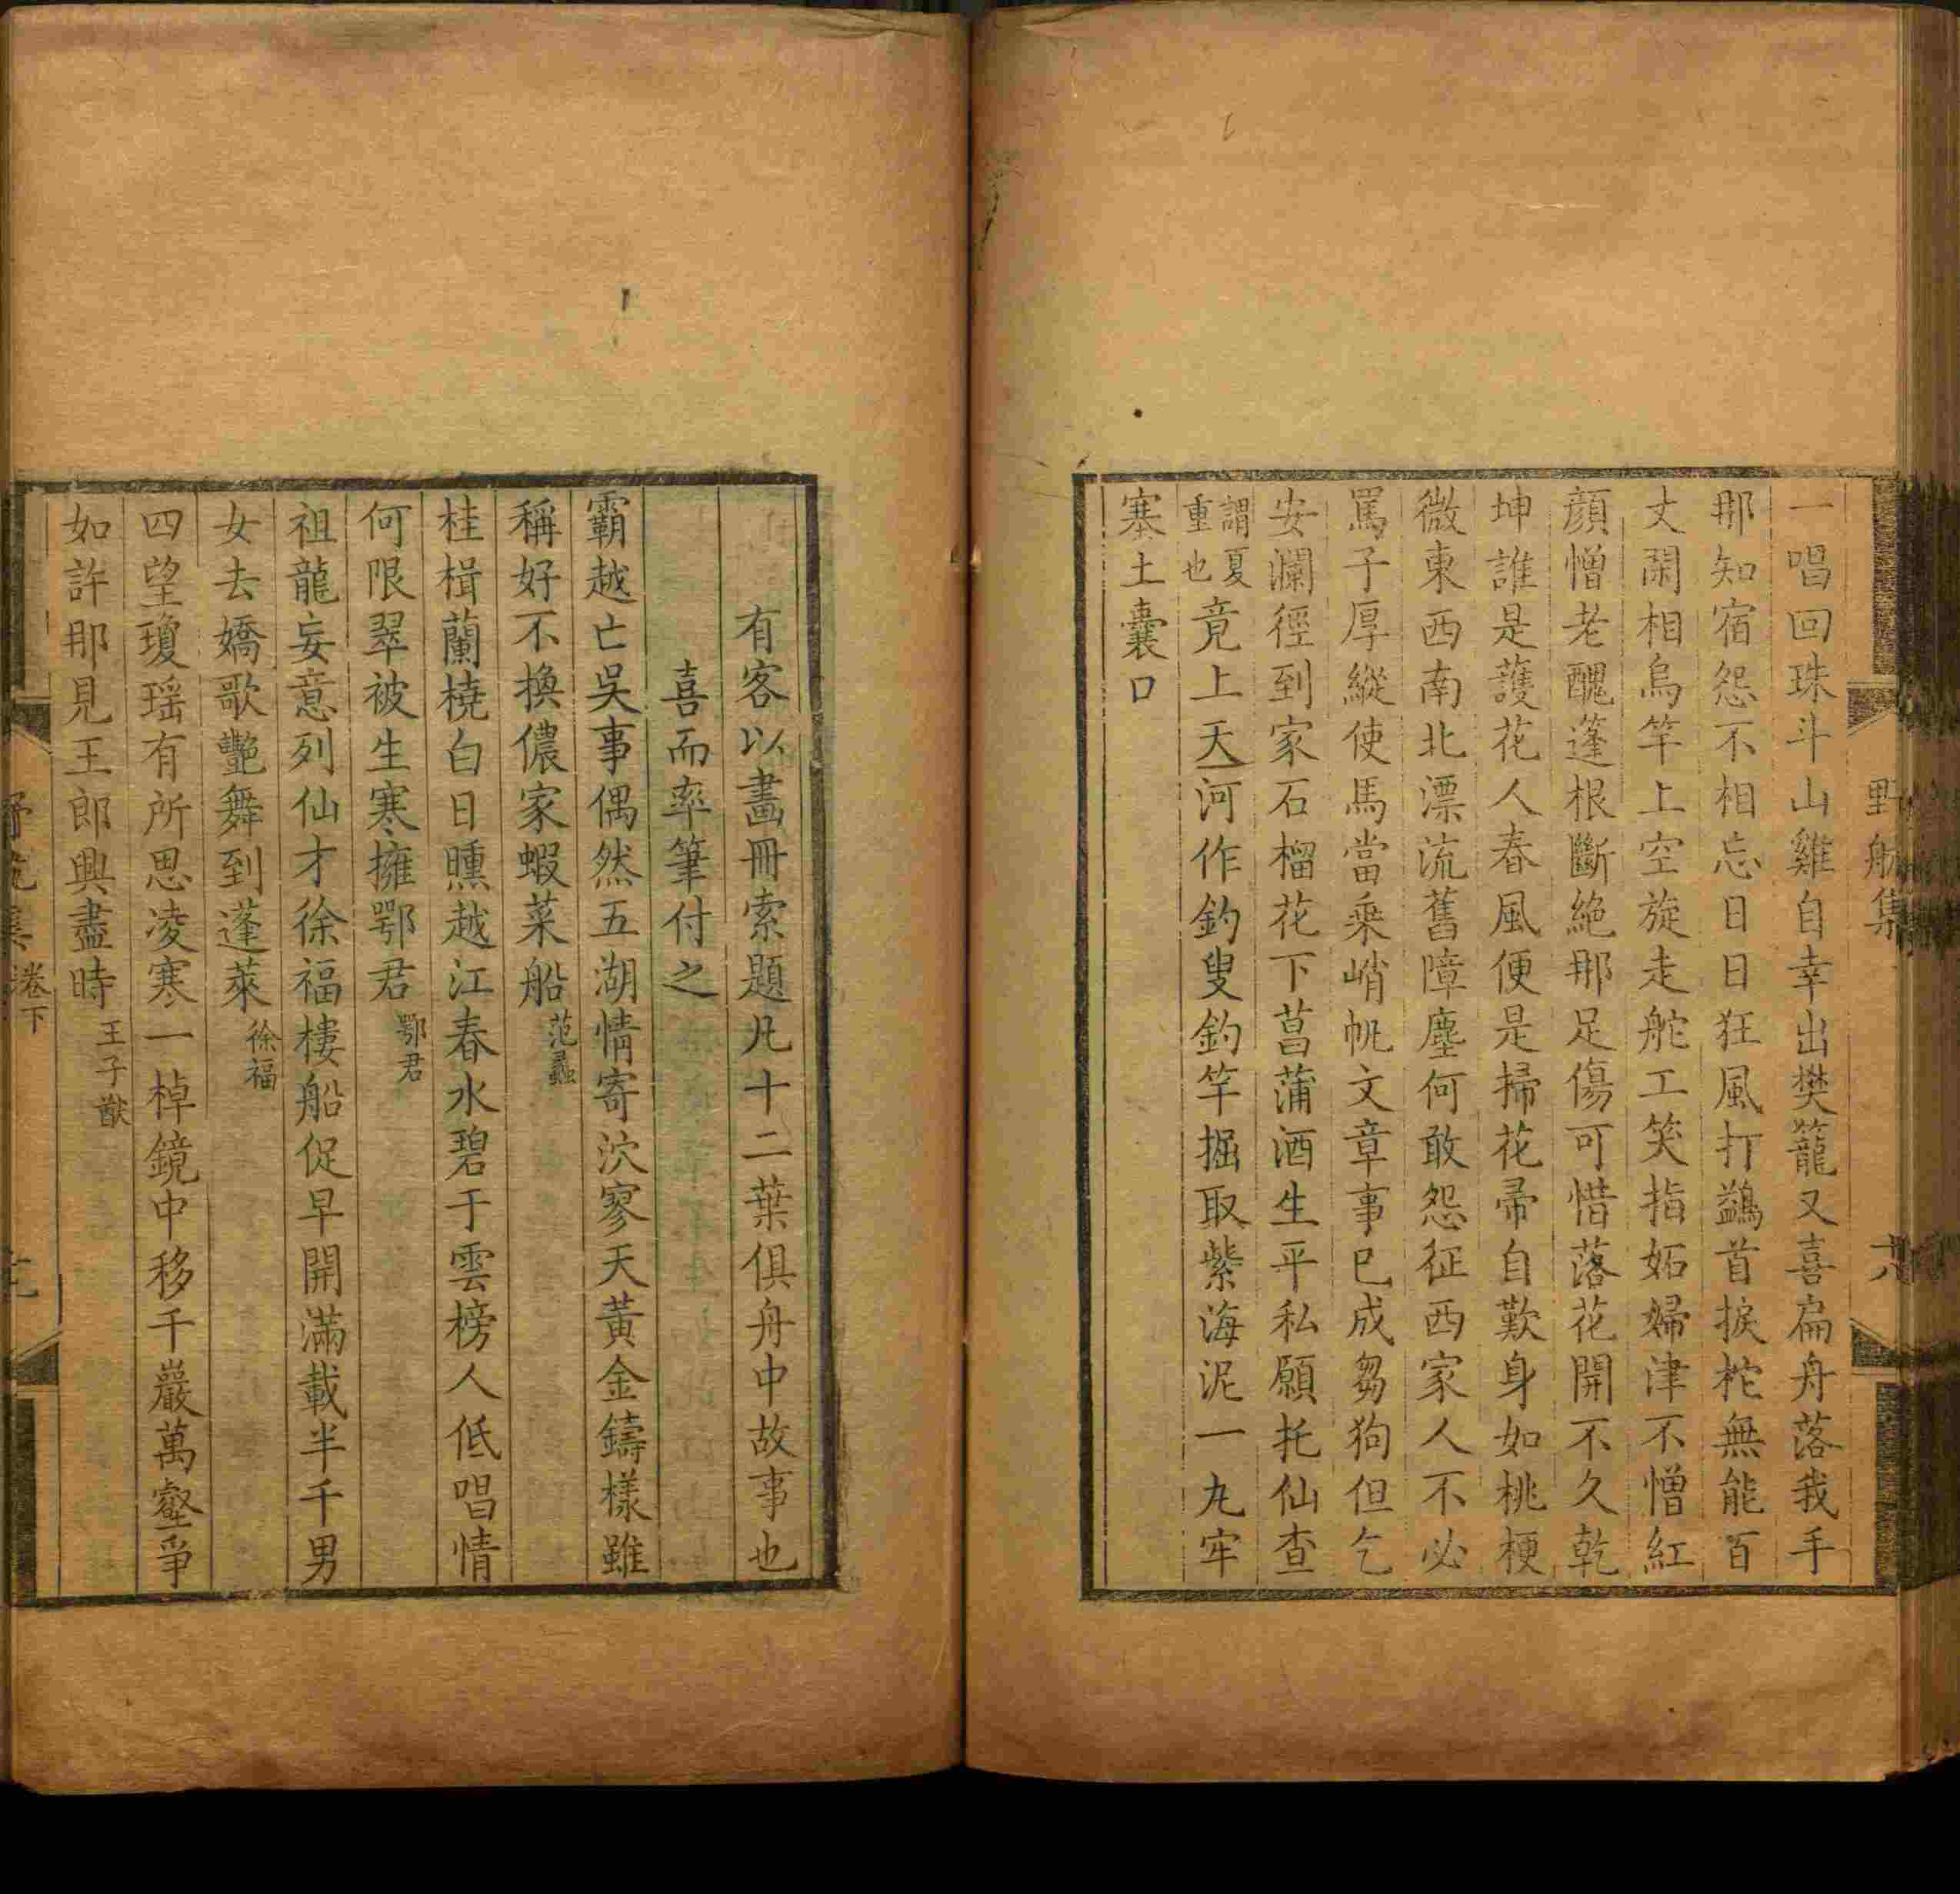 野航集
六
一唱回珠斗山雞自幸出樊籠又喜扁舟落我手
那知宿怨不相忘日日狂風打鷁首捩柁無能百
丈閑相烏竿上空旋走舵工笑指妬婦津不憎紅
顔憎老醜蓬根斷絶那足傷可惜落花開不久乾
坤誰是護花人春風便是掃花帚自歎身如桃梗
微東西南北漂流舊障塵何敢怨征西家人不必
罵子厚縱使馬當乘峭帆文章事已成芻狗但乞
安瀾徑到家石榴花下菖蒲酒生平私願托仙查
謂夏
重也
竟上天河作釣叟釣竿掘取紫海泥一丸牢
塞土囊口
有客以畫冊索題凡十二葉俱舟中故事也
喜而率筆付之
霸越亡吳事偶然五湖情寄泬寥天黃金鑄樣雖
稱好不換儂家蝦菜船范蠡
桂楫蘭橈白日曛越江春水碧于雲榜人低唱情
何限翠被生寒擁鄂君鄂君
祖龍妄意列仙才徐福樓船促早開滿載半千男
女去嬌歌艷舞到蓬萊徐福
四望瓊瑶有所思凌寒一棹鏡中移千巖萬壑爭
如許那見王郎興盡時王子猷
卷下